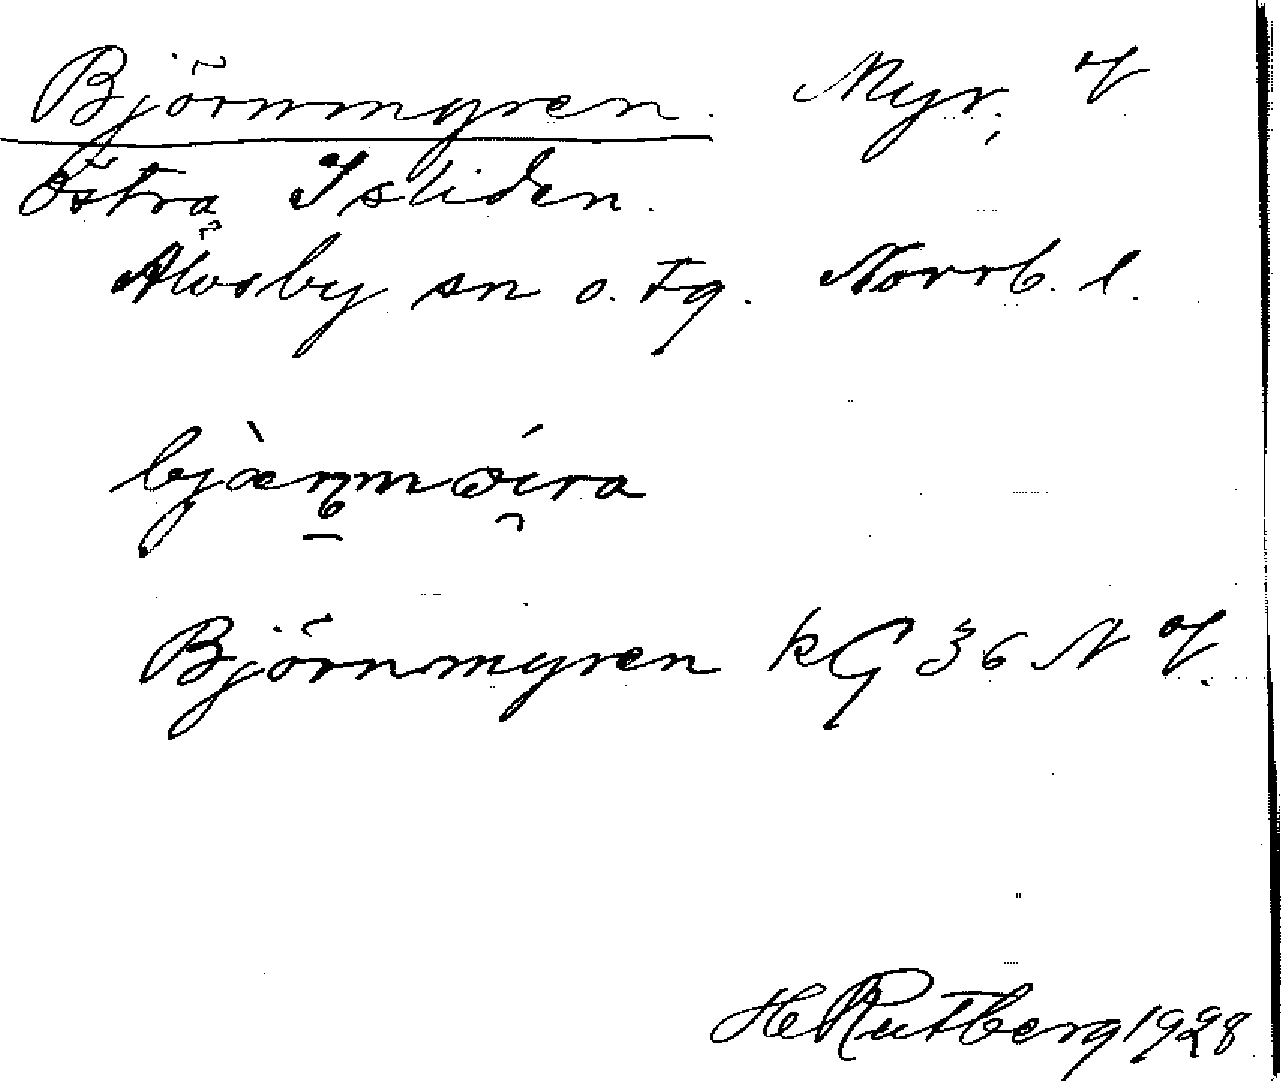 Björnmyren. Myr, V
Östra Isliden.
Älvsby sn o. tg. Norrb. l.
bjærnmɷira
Björnmyren kG 36 N V.
H Rutberg 1928